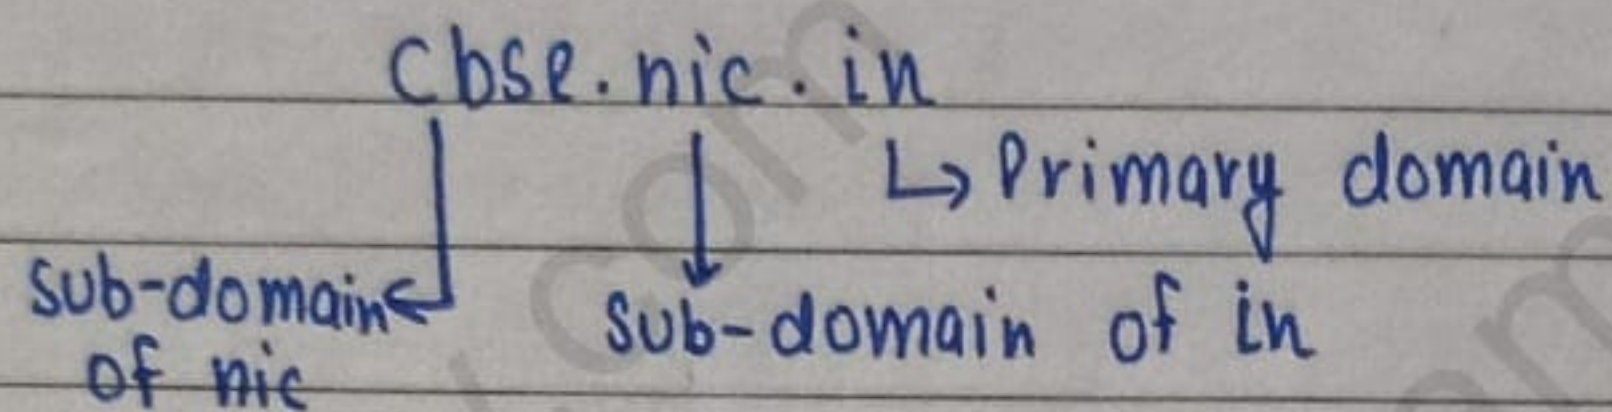 cbse.nic.in
Primary domain
sub-domain of nic
sub-domain of in